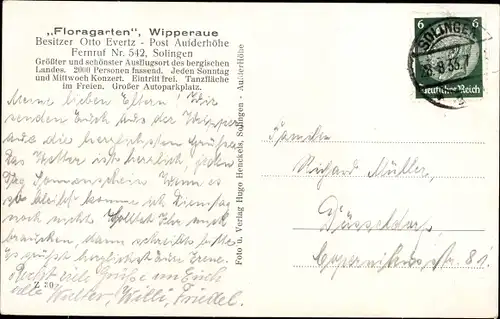 „Floragarten", Wipperaue
Besitzer Otto Evertz - Post Aufderhöhe
Fernruf Nr. 542, Solingen
Größter und schönster Ausflugsort des bergischen
Landes. 2000 Personen fassend. Jeden Sonntag
und Mittwoch Konzert. Eintritt frei. Tanzfläche
im Freien. Großer Autoparkplatz.
Meine lieben Eltern! Wir
senden Euch aus der Wipper-
aue die herzlichsten Grüße.
Das Wetter ist herrlich, jeden
Tag Sonnenschein. Wenn es
so bleibt komme ich Dienstag
noch nicht. Solltet Ihr mich
brauchen, dann schreibt bitte.
Es grüßt herzlichst Eure Irene.
Recht viele Grüße an Euch
alle Walter, Willi, Friedel.
Z 30
Foto u. Verlag Hugo Henckels, Solingen - Aufderhöhe
6 6
SOLINGEN
Deutsches Reich
Familie
Richard Müller,
Düsseldorf,
Copernikus str. 81.